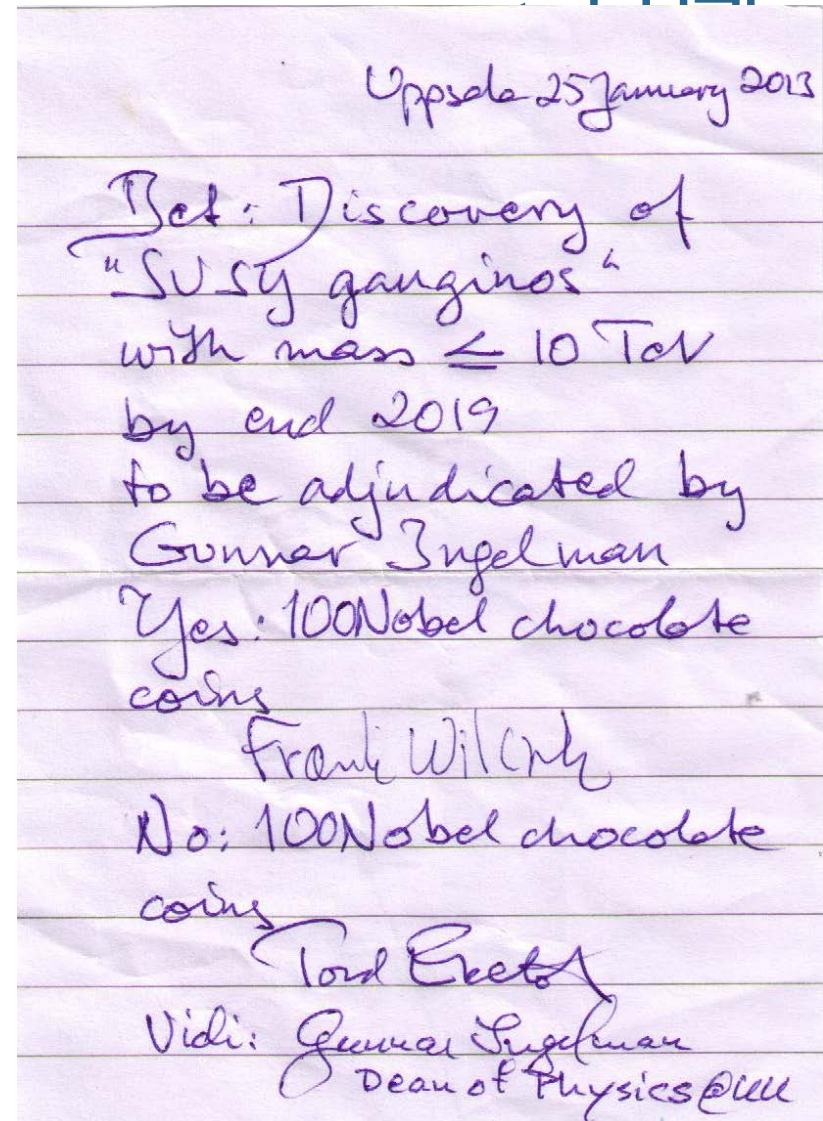 Uppsala 25 January 2013
Bet: Discovery of
"SUSY gauginos"
with mass ≤ 10 TeV
by end 2019
to be adjudicated by
Gunnar Ingelman
Yes: 100 Nobel chocolate
coins
Frank Wilczek
No: 100 Nobel chocolate
coins
Tord Ekelöf
Vidi: Gunnar Ingelman
Dean of Physics @UU